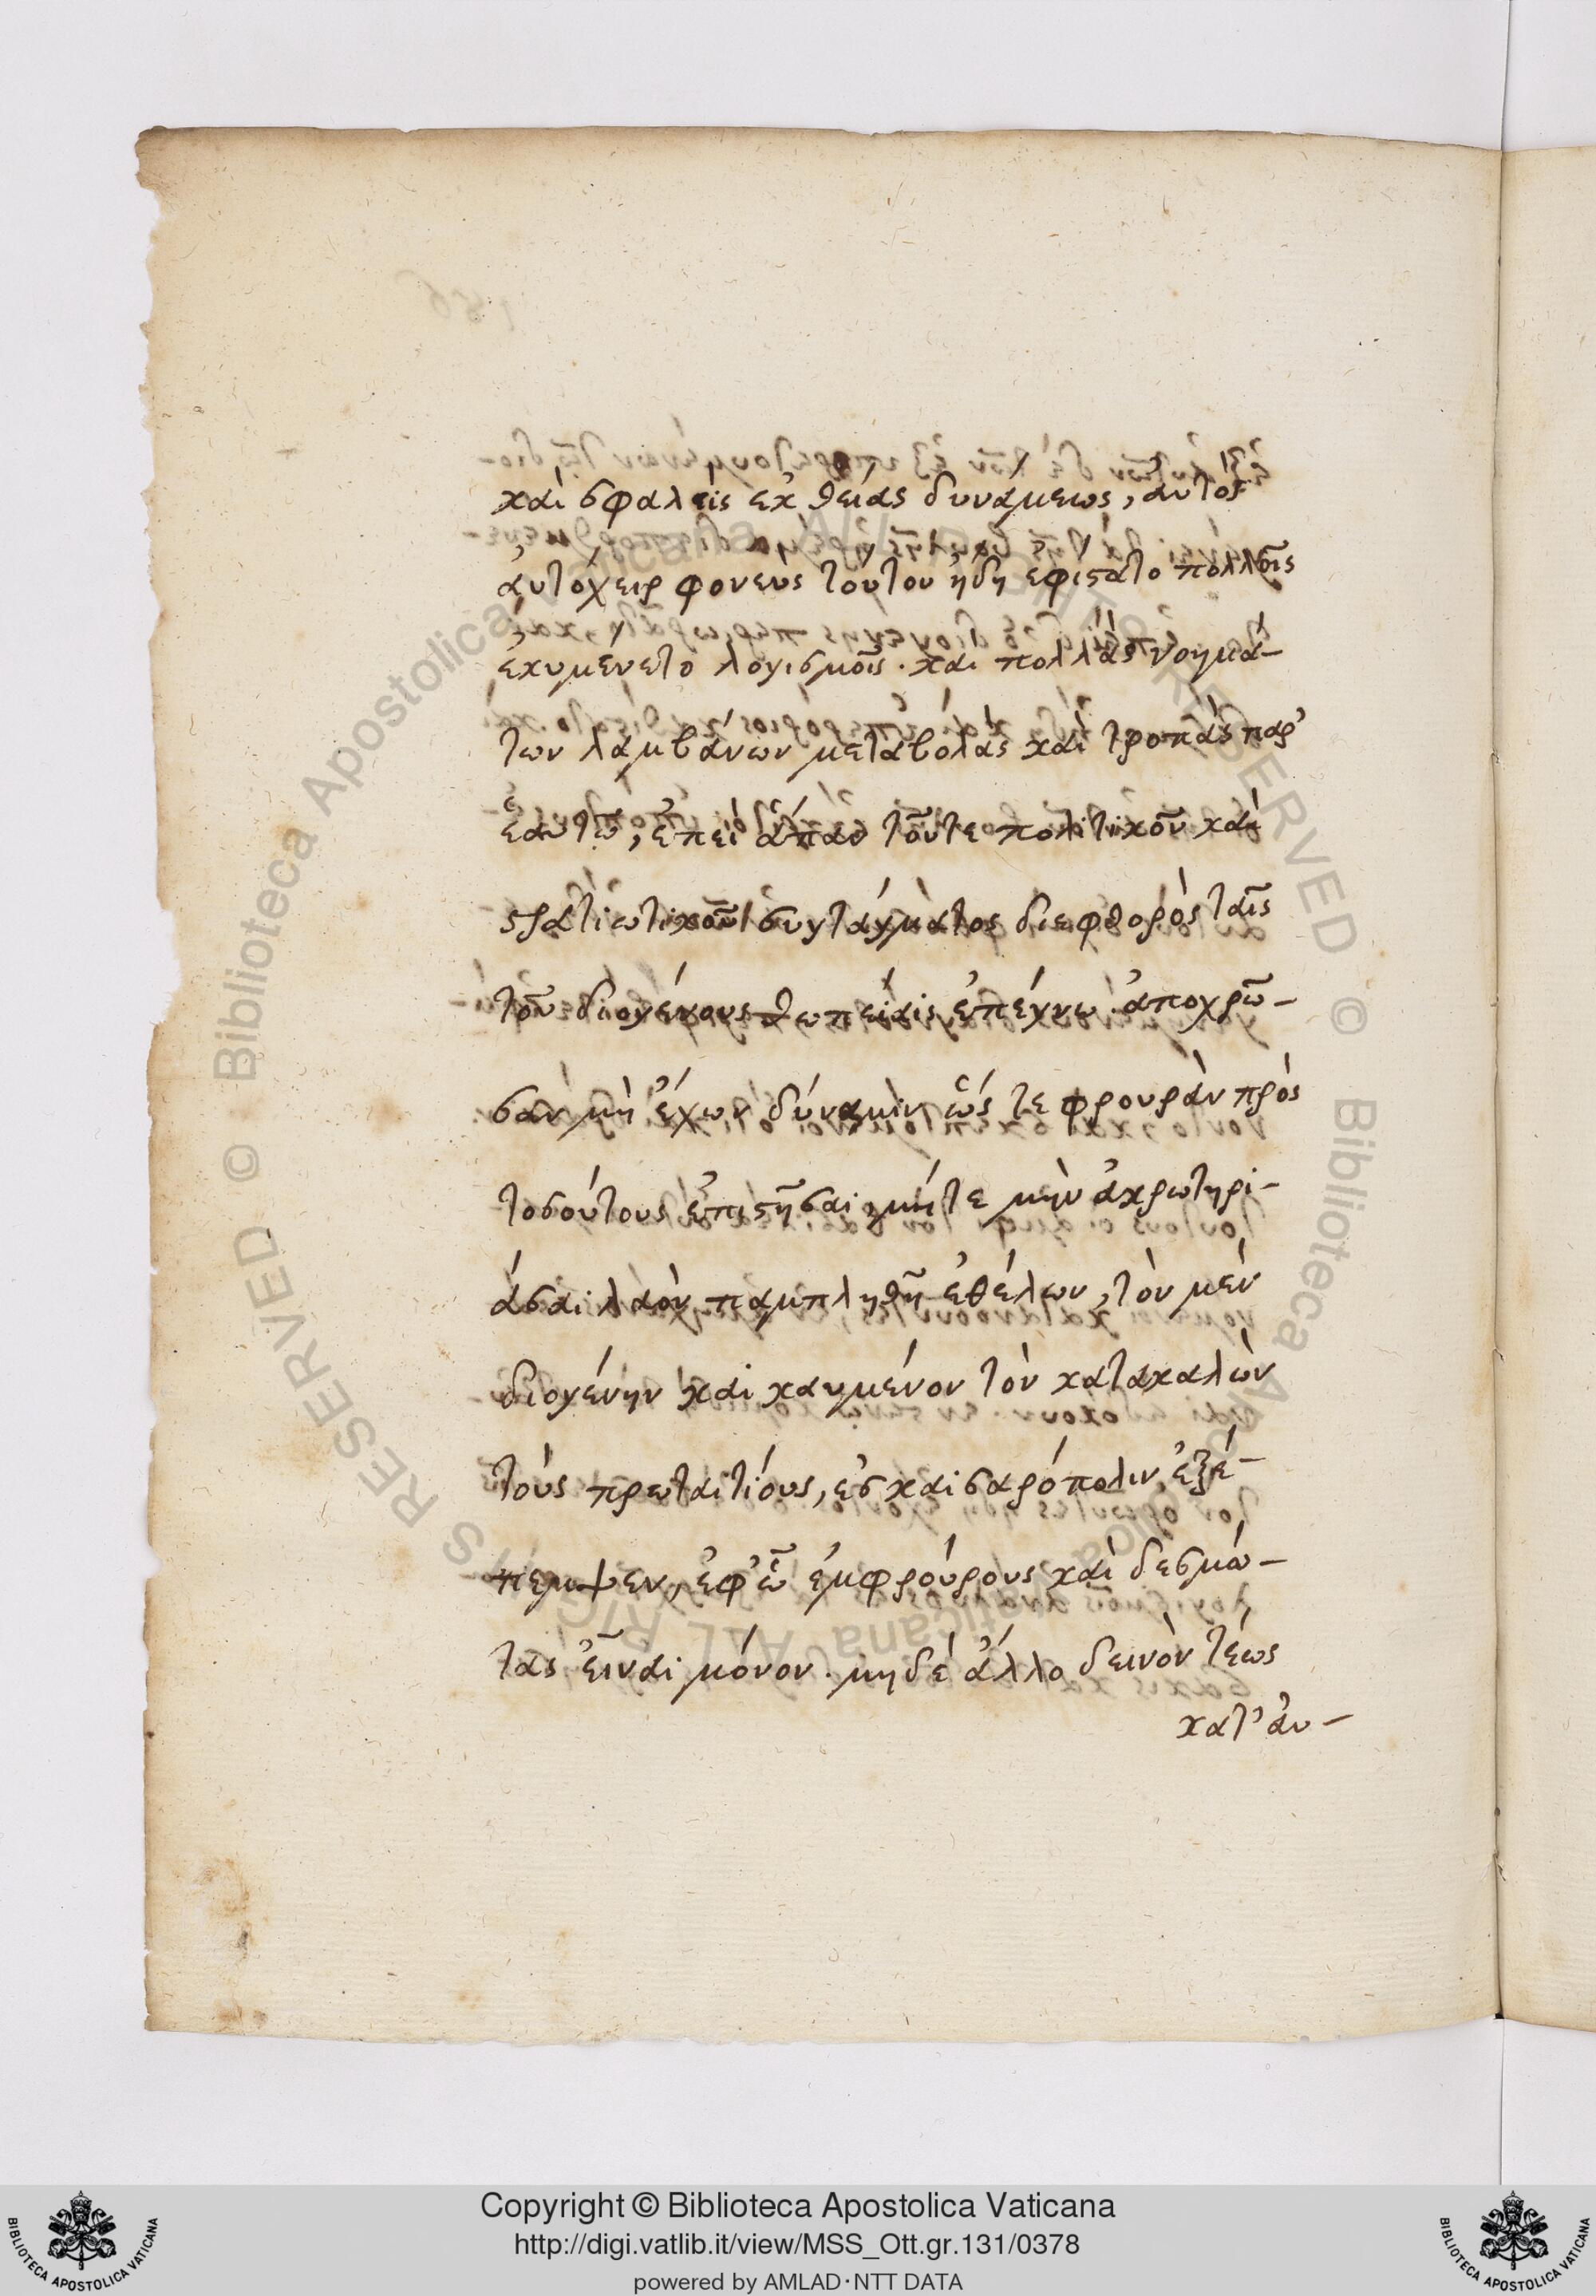 καὶ σφαλεὶς ἐκ θείας δυνάμεως, αὐτὸς
αὐτόχειρ φονεὺς τούτου ἤδη ἐφίστατο πολλοῖς
ἐκυμαίνετο λογισμοῖς. καὶ πολλὰς νοημά-
των λαμβάνων μεταβολὰς καὶ τροπὰς παρ'
ἑαυτῷ, ἐπεὶ ἅπαν τοῦτε πολιτικοῦ καὶ
στρατιωτικοῦ συντάγματος διεφθορὸς ταῖς
τοῦ διογένους θωπείαις ἐπέγνω. ἀποχρῶ-
σαν μὴ ἔχων δύναμιν ὥς τε φρουρὰν πρὸς
τοσούτους ἐπιστῆσαι, μήτε μὴν ἀκρωτηρι-
άσαι λαὸν παμπληθῆ ἐθέλων, τὸν μὲν
διογένην καὶ καυμένον τὸν κατακαλὼν
τοὺς πρωταιτίους, ἐσ καισαρόπολιν ἐξέ-
πεμψεν, ἐφ' ᾧ ἐμφρούρους καὶ δεσμώ-
τας εἶναι μόνον. μηδὲ ἄλλο δεινὸν τέως
κατ' αὐ-
Copyright © Biblioteca Apostolica Vaticana
http://digi.vatlib.it/view/MSS_Ott.gr.131/0378
powered by AMLAD·NTT DATA
BIBLIOTECA APOSTOLICA VATICANA
BIBLIOTECA APOSTOLICA VATICANA